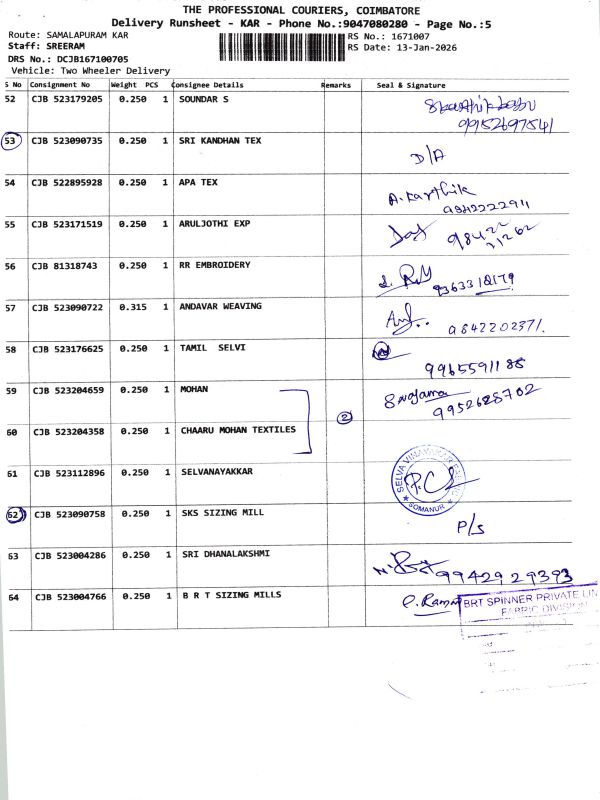 THE PROFESSIONAL COURIERS, COIMBATORE
Delivery Runsheet - KAR - Phone No.:9047080280 - Page No.:5
Route: SAMALAPURAM KAR RS No.: 1671007
Staff: SREERAM RS Date: 13-Jan-2026
DRS No.: DCJB167100705
Vehicle: Two Wheeler Delivery
S No Consignment No Weight PCS Consignee Details Remarks Seal & Signature
52 CJB 523179205 0.250 1 SOUNDAR S
9952697541
53 CJB 523090735 0.250 1 SRI KANDHAN TEX D/A
54 CJB 522895928 0.250 1 APA TEX A. Karthik
9842222911
55 CJB 523171519 0.250 1 ARULJOTHI EXP 98422
21262
56 CJB 81318743 0.250 1 RR EMBROIDERY 9363318179
57 CJB 523090722 0.315 1 ANDAVAR WEAVING 9842202371.
58 CJB 523176625 0.250 1 TAMIL SELVI
9965591188
59 CJB 523204659 0.250 1 MOHAN
2 9952628702
60 CJB 523204358 0.250 1 CHAARU MOHAN TEXTILES
61 CJB 523112896 0.250 1 SELVANAYAKKAR SELVA VINAYAKAR SOMANUR
62 CJB 523090758 0.250 1 SKS SIZING MILL P/S
63 CJB 523004286 0.250 1 SRI DHANALAKSHMI 9942929393
64 CJB 523004766 0.250 1 B R T SIZING MILLS BRT SPINNER PRIVATE LIN
FABRIC DIVISION